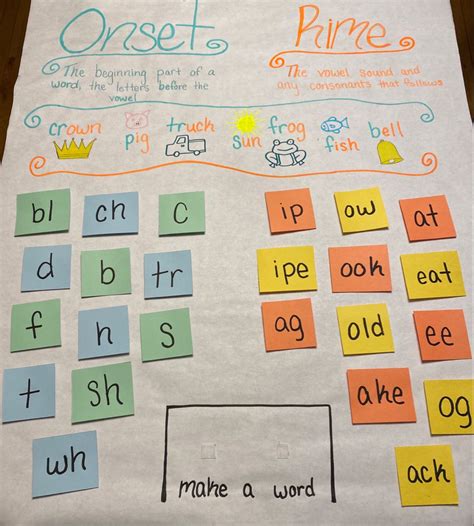 Onset Rime
The beginning part of a
word, the letters before the
vowel
The vowel sound and
any consonants that follows
crown pig truck sun frog fish bell
bl ch c ip ow at
d b tr ipe ook eat
f h s ag old ee
t sh ake og
wh ack
make a word